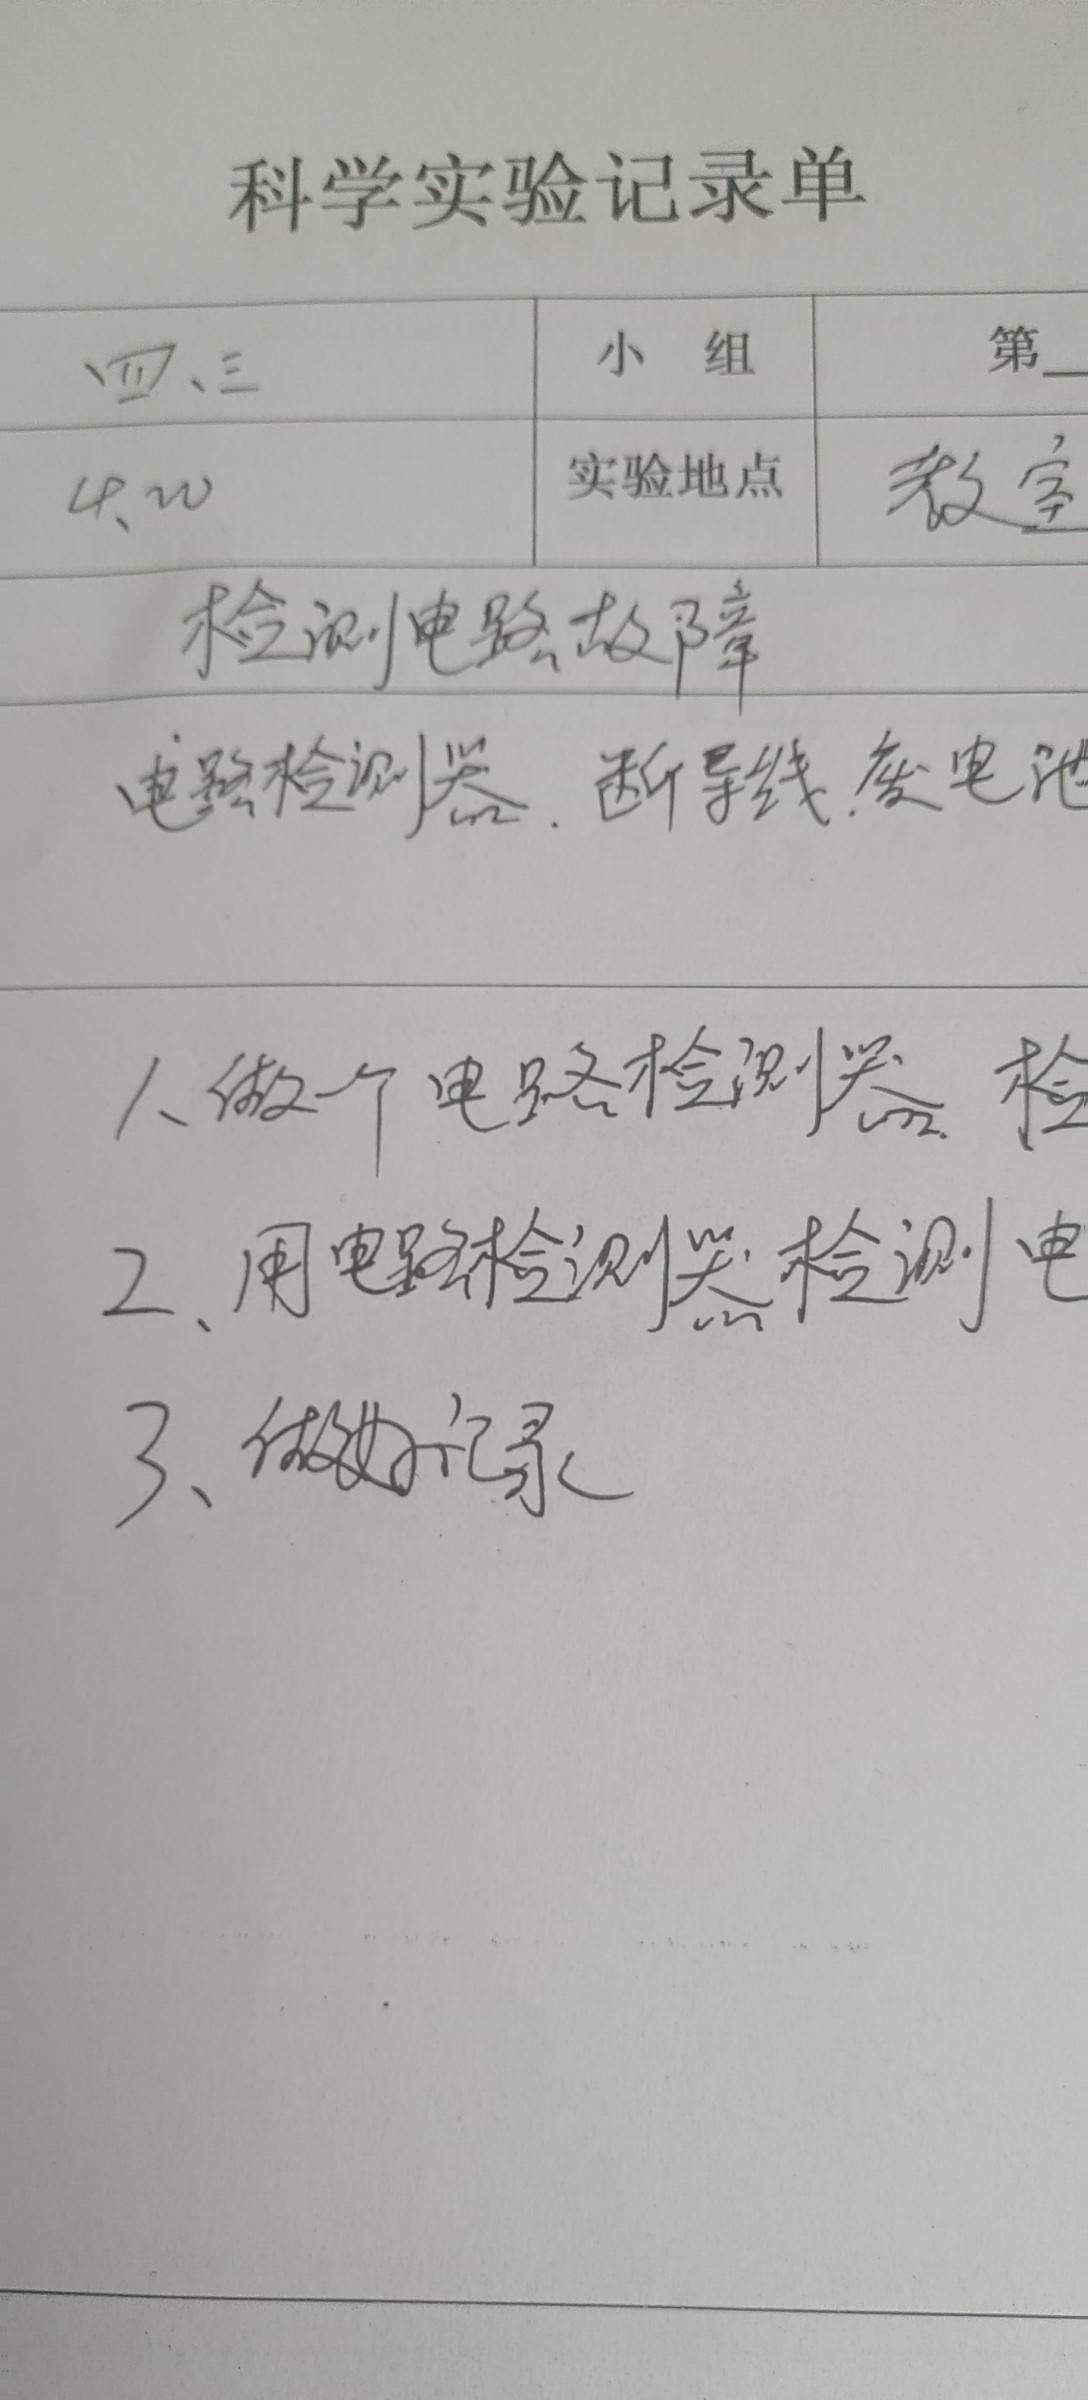 科学实验记录单
四、三 小组 第
4、20 实验地点 教室
检测电路故障
电路检测器、断导线、废电池
1、做个电路检测器 检
2、用电路检测器检测电
3、做好记录